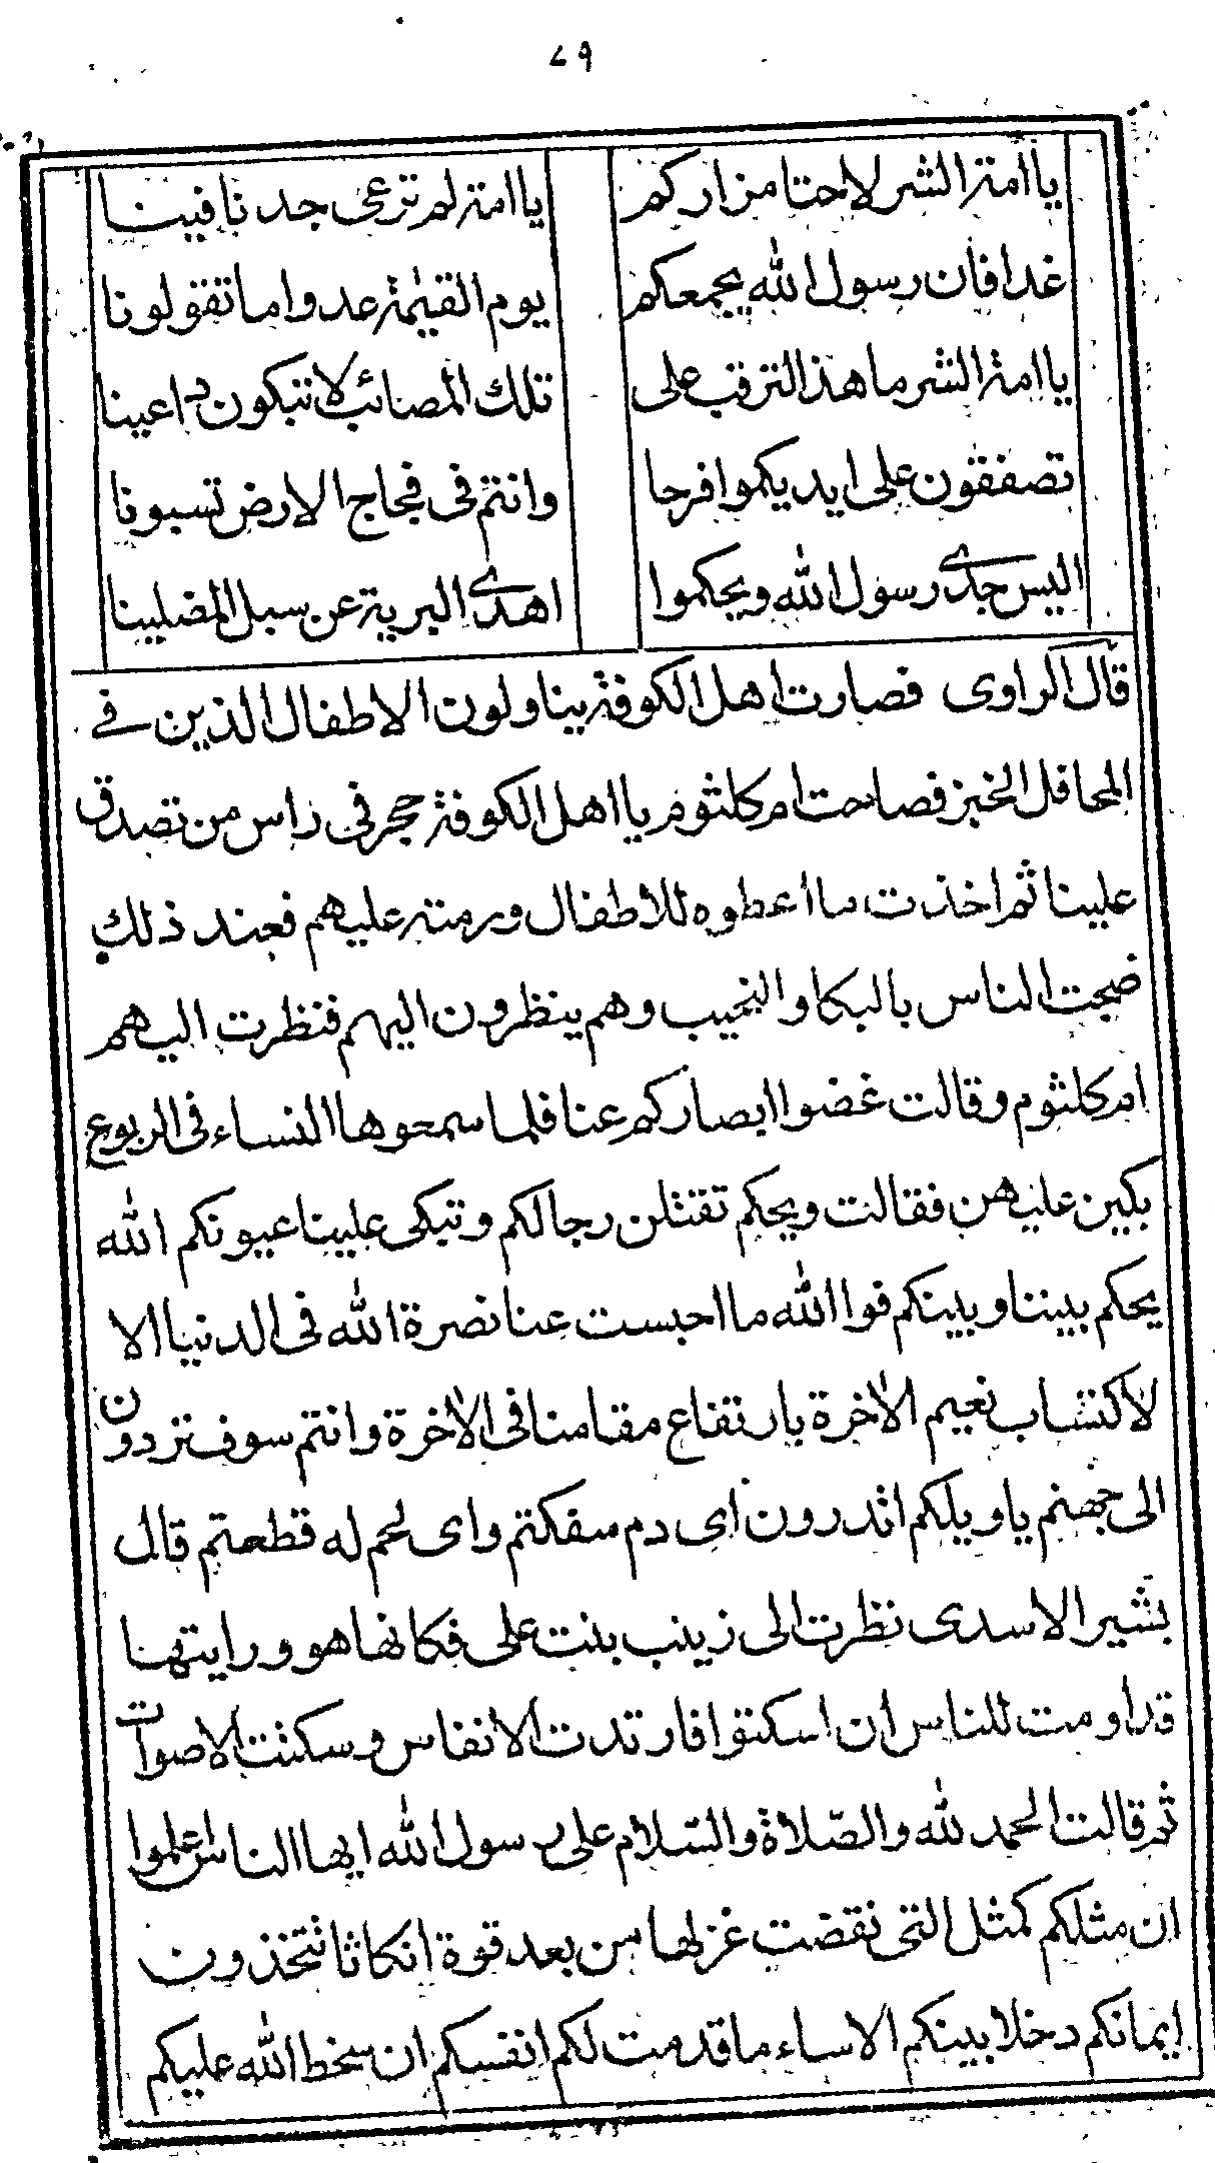 ٧٩
يا امة الشر لاحتا مزاركم يا امة لم ترعى جدنا فينا
غدا فان رسول الله يجمعكم يوم القيٰمة عدوا ما تقولونا
يا امة الشر ما هذ الترقب على تلك المصائب لا تبكون داعينا
تصفقون على ايديكموا فرحا وانتم فى فجاج الارض تسبونا
اليس جدى رسول الله ويحكموا اهدى البرية عن سبل المضلينا
قال الراوى فصارت اهل الكوفة يناولون الاطفال الذين فے
المحافل الخبز فصاحت ام كلثوم يا اهل الكوفة حجر فى راس من تصدق
علينا ثم اخذت ما اعطوه للاطفال ورمته عليهم فعند ذلك
ضجت الناس بالبكا والنحيب وهم ينظرون اليهم فنظرت اليهم
ام كلثوم وقالت غضوا ابصاركم عنا فلما سمعوها النساء فى الربوع
بكين عليهن فقالت ويحكم تقتلن رجالكم وتبكى علينا عيونكم الله
يحكم بيننا وبينكم فوا الله ما احبست عنا نصرة الله فى الدنيا الا
لاكتساب نعيم الاخرة بارتفاع مقامنا فى الاخرة وانتم سوف تردون
الى جهنم يا ويلكم اتدرون اى دم سفكتم واى لحم له قطعتم قال
بشير الاسدى نظرت الى زينب بنت على فكانها هو ورايتها
قد اومت للناس ان اسكتوا فارتدت الانفاس وسكنت الاصوات
ثم قالت الحمد لله والصّلاة والسّلام على رسول الله ايها الناس اعلموا
ان مثلكم كمثل التى نقضت غزلها من بعد قوة انكاثا تتخذون
ايمانكم دخلا بينكم الا ساء ما قدمت لكم انفسكم ان سخط الله عليكم